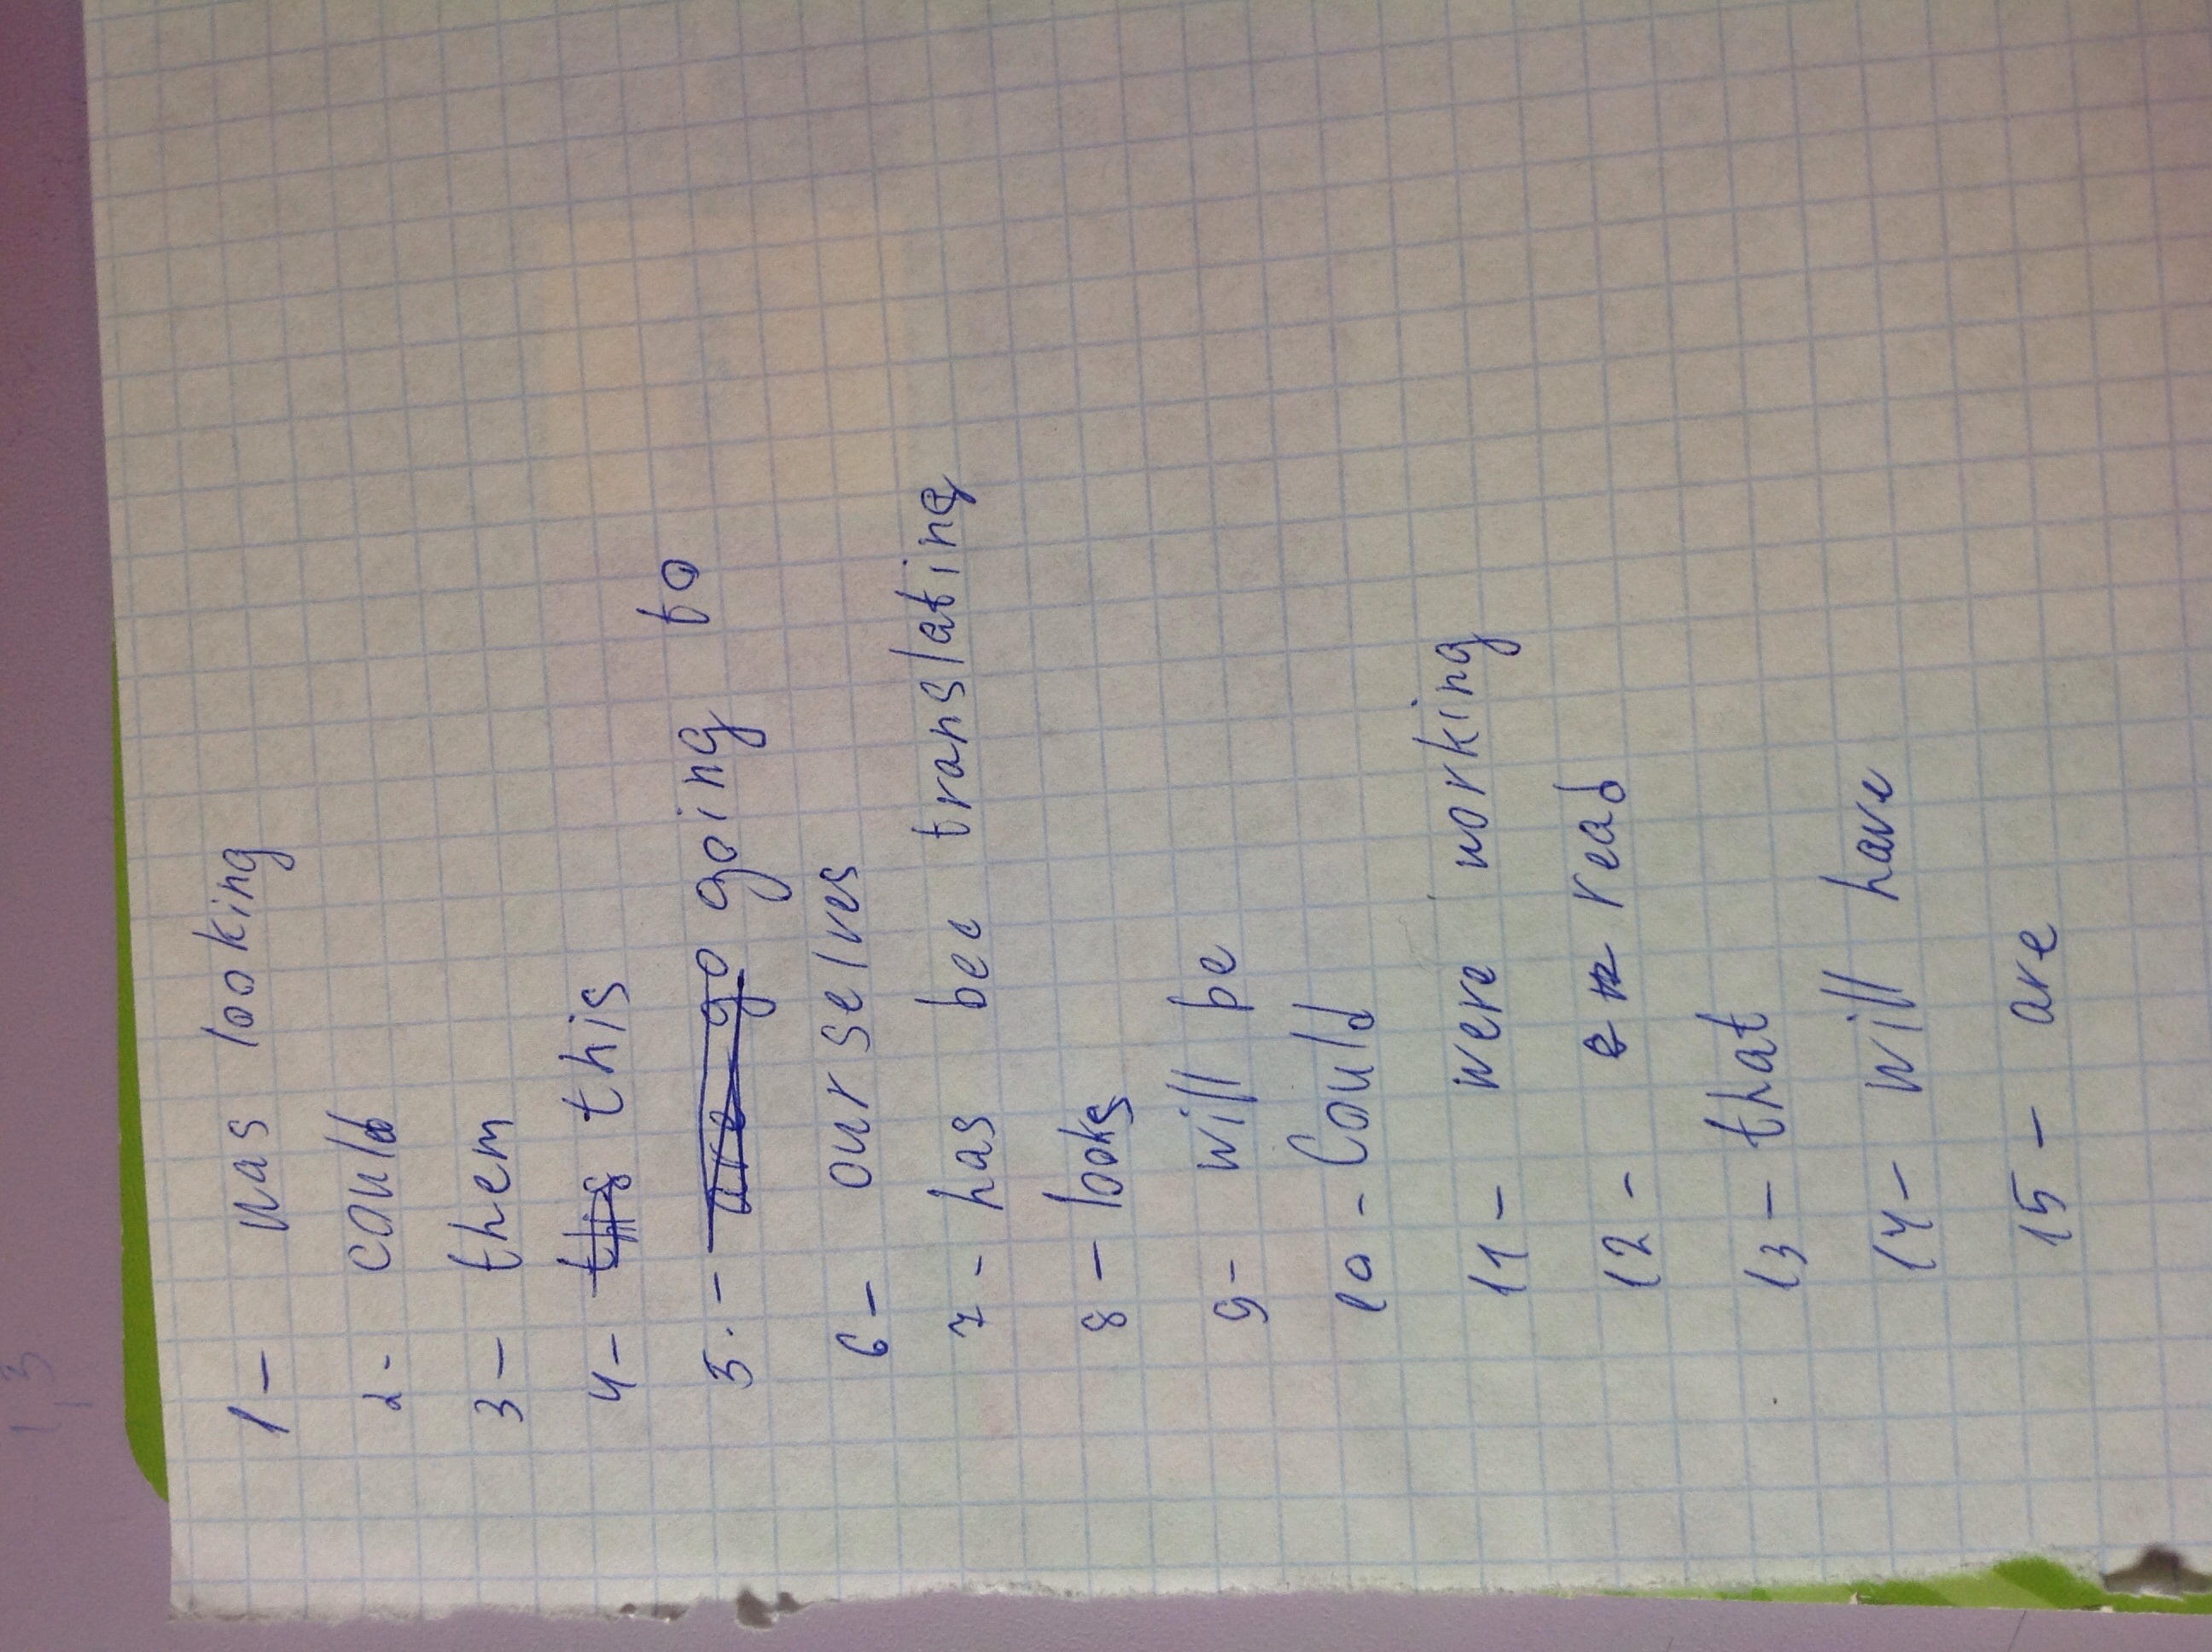 1 - was looking
2 - could
3 - them
4 - this
5. - going to
6 - ourselves
7 - has bee translating
8 - looks
9 - will be
10 - Could
11 - were working
12 - read
13 - that
14 - will have
15 - are